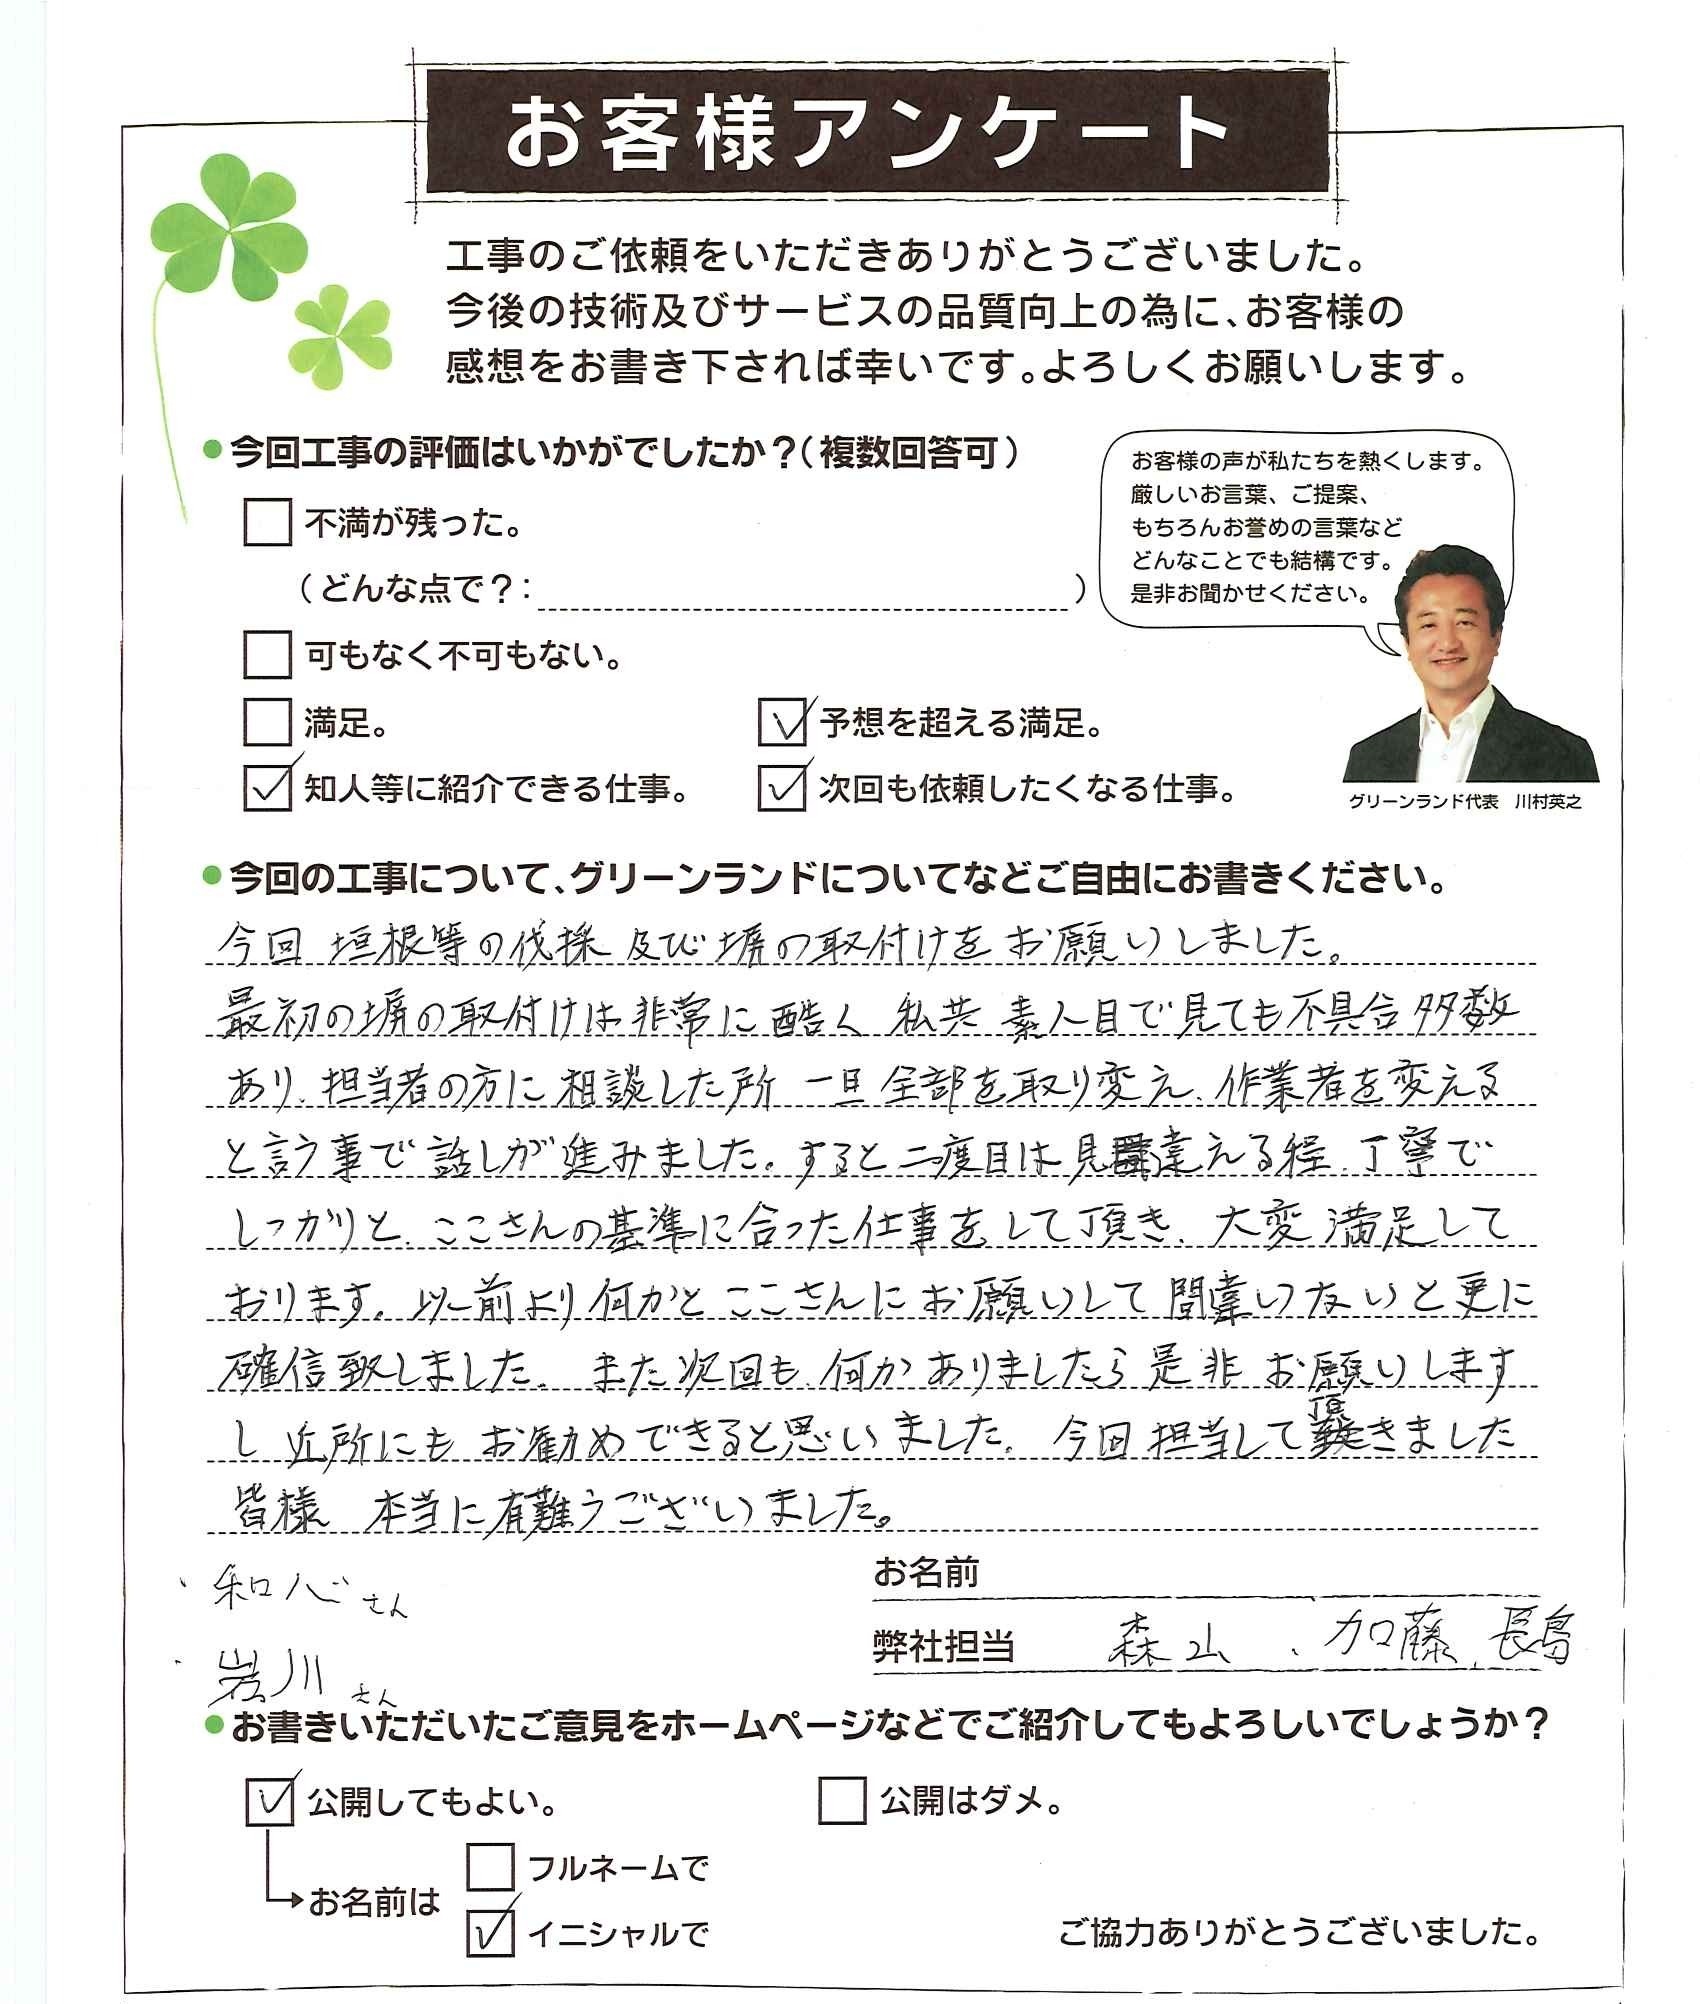 お客様アンケート
工事のご依頼をいただきありがとうございました。
今後の技術及びサービスの品質向上の為に、お客様の
感想をお書き下されば幸いです。よろしくお願いします。
●今回工事の評価はいかがでしたか？（複数回答可）
お客様の声が私たちを熱くします。
厳しいお言葉、ご提案、
もちろんお誉めの言葉など
どんなことでも結構です。
是非お聞かせください。
不満が残った。
（どんな点で？：　）
可もなく不可もない。
満足。
予想を超える満足。
知人等に紹介できる仕事。
次回も依頼したくなる仕事。
グリーンランド代表　川村英之
●今回の工事について、グリーンランドについてなどご自由にお書きください。
今回 垣根等の伐採 及び塀の取付けをお願いしました。
最初の塀の取付けは非常に酷く 私共 素人目で見ても不具合多数
あり、担当者の方に相談した所 一旦全部を取り変え、作業者を変える
と言う事で話しが進みました。すると二度目は見違える程、丁寧で
しっかりと、ここさんの基準に合った仕事をして頂き、大変満足して
おります。以前より何かとここさんにお願いして間違いないと更に
確信致しました。また次回も、何かありましたら是非お願いします
し 近所にもお勧めできると思いました。今回担当して頂きました
皆様 本当に有難うございました。
・和心さん
・岩川さん
お名前
弊社担当　森山、加藤、長島
●お書きいただいたご意見をホームページなどでご紹介してもよろしいでしょうか？
公開してもよい。
公開はダメ。
お名前は
フルネームで
イニシャルで
ご協力ありがとうございました。